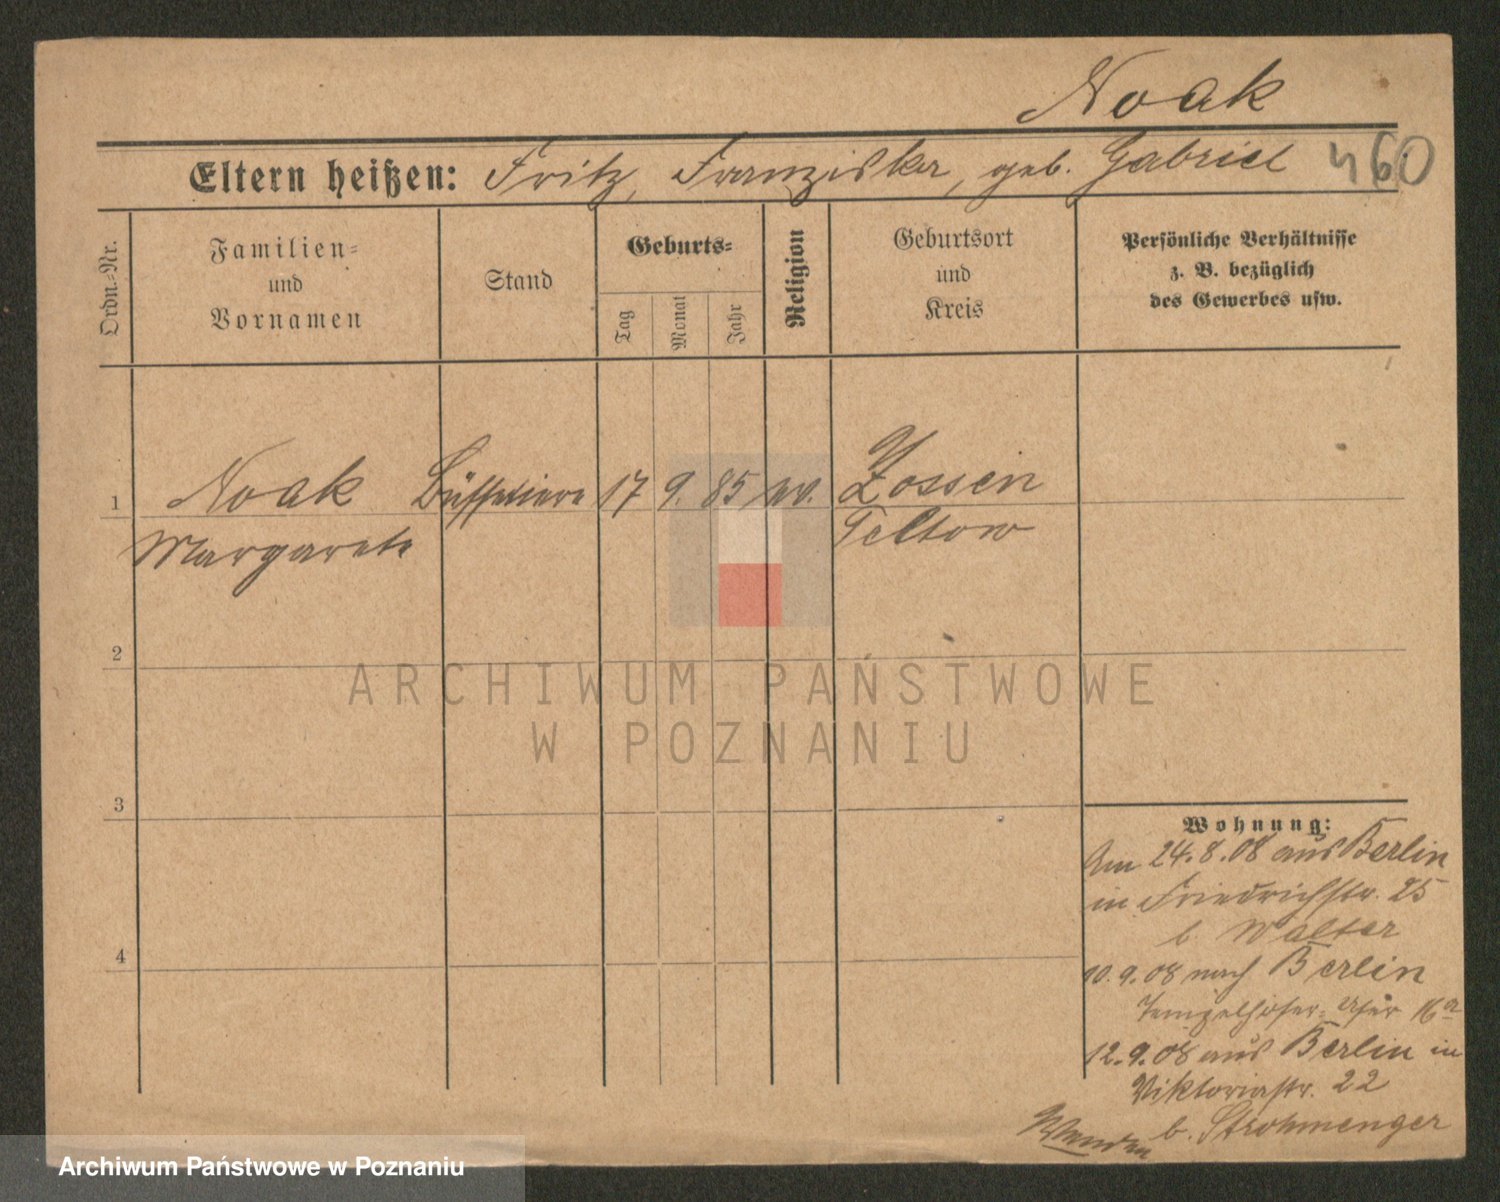 Noak
Eltern heißen: Fritz, Franziska, geb. Gabriel 460
Ordn.-Nr.
Familien-
und
Vornamen
Stand
Geburts-
Tag
Monat
Jahr
Religion
Geburtsort
und
Kreis
Persönliche Verhältnisse
z. B. bezüglich
des Gewerbes usw.
1 Noak Büffetiere 17 9. 85 ev. Zossen
Margarete Teltow
2
3
4
Wohnung:
Am 24.8.08 aus Berlin
in Friedrichstr. 25
b. Walter
10.9.08 nach Berlin
Tempelhofer-Ufer 16a
12.9.08 aus Berlin in
Viktoriastr. 22
b. Strohmenger
Wenden
ARCHIWUM PAŃSTWOWE
W POZNANIU
Archiwum Państwowe w Poznaniu